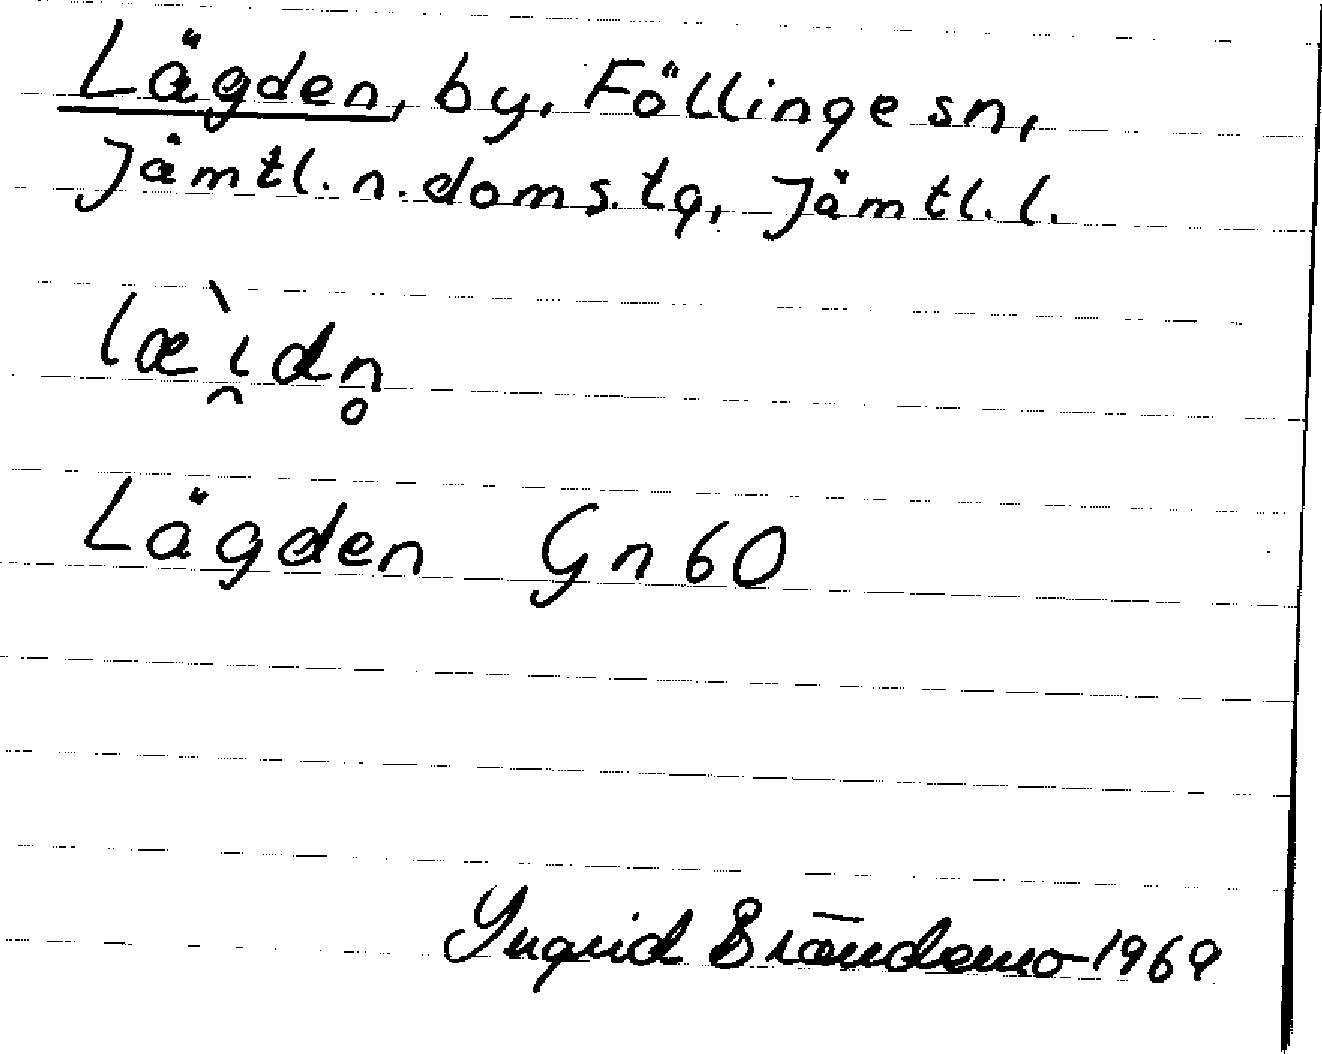 Lägden, by, Föllinge sn,
Jämtl. n. doms. tg, Jämtl. l.
læ̀ɩ̯dn̥
Lägden Gn 60
Ingrid Brändemo 1969